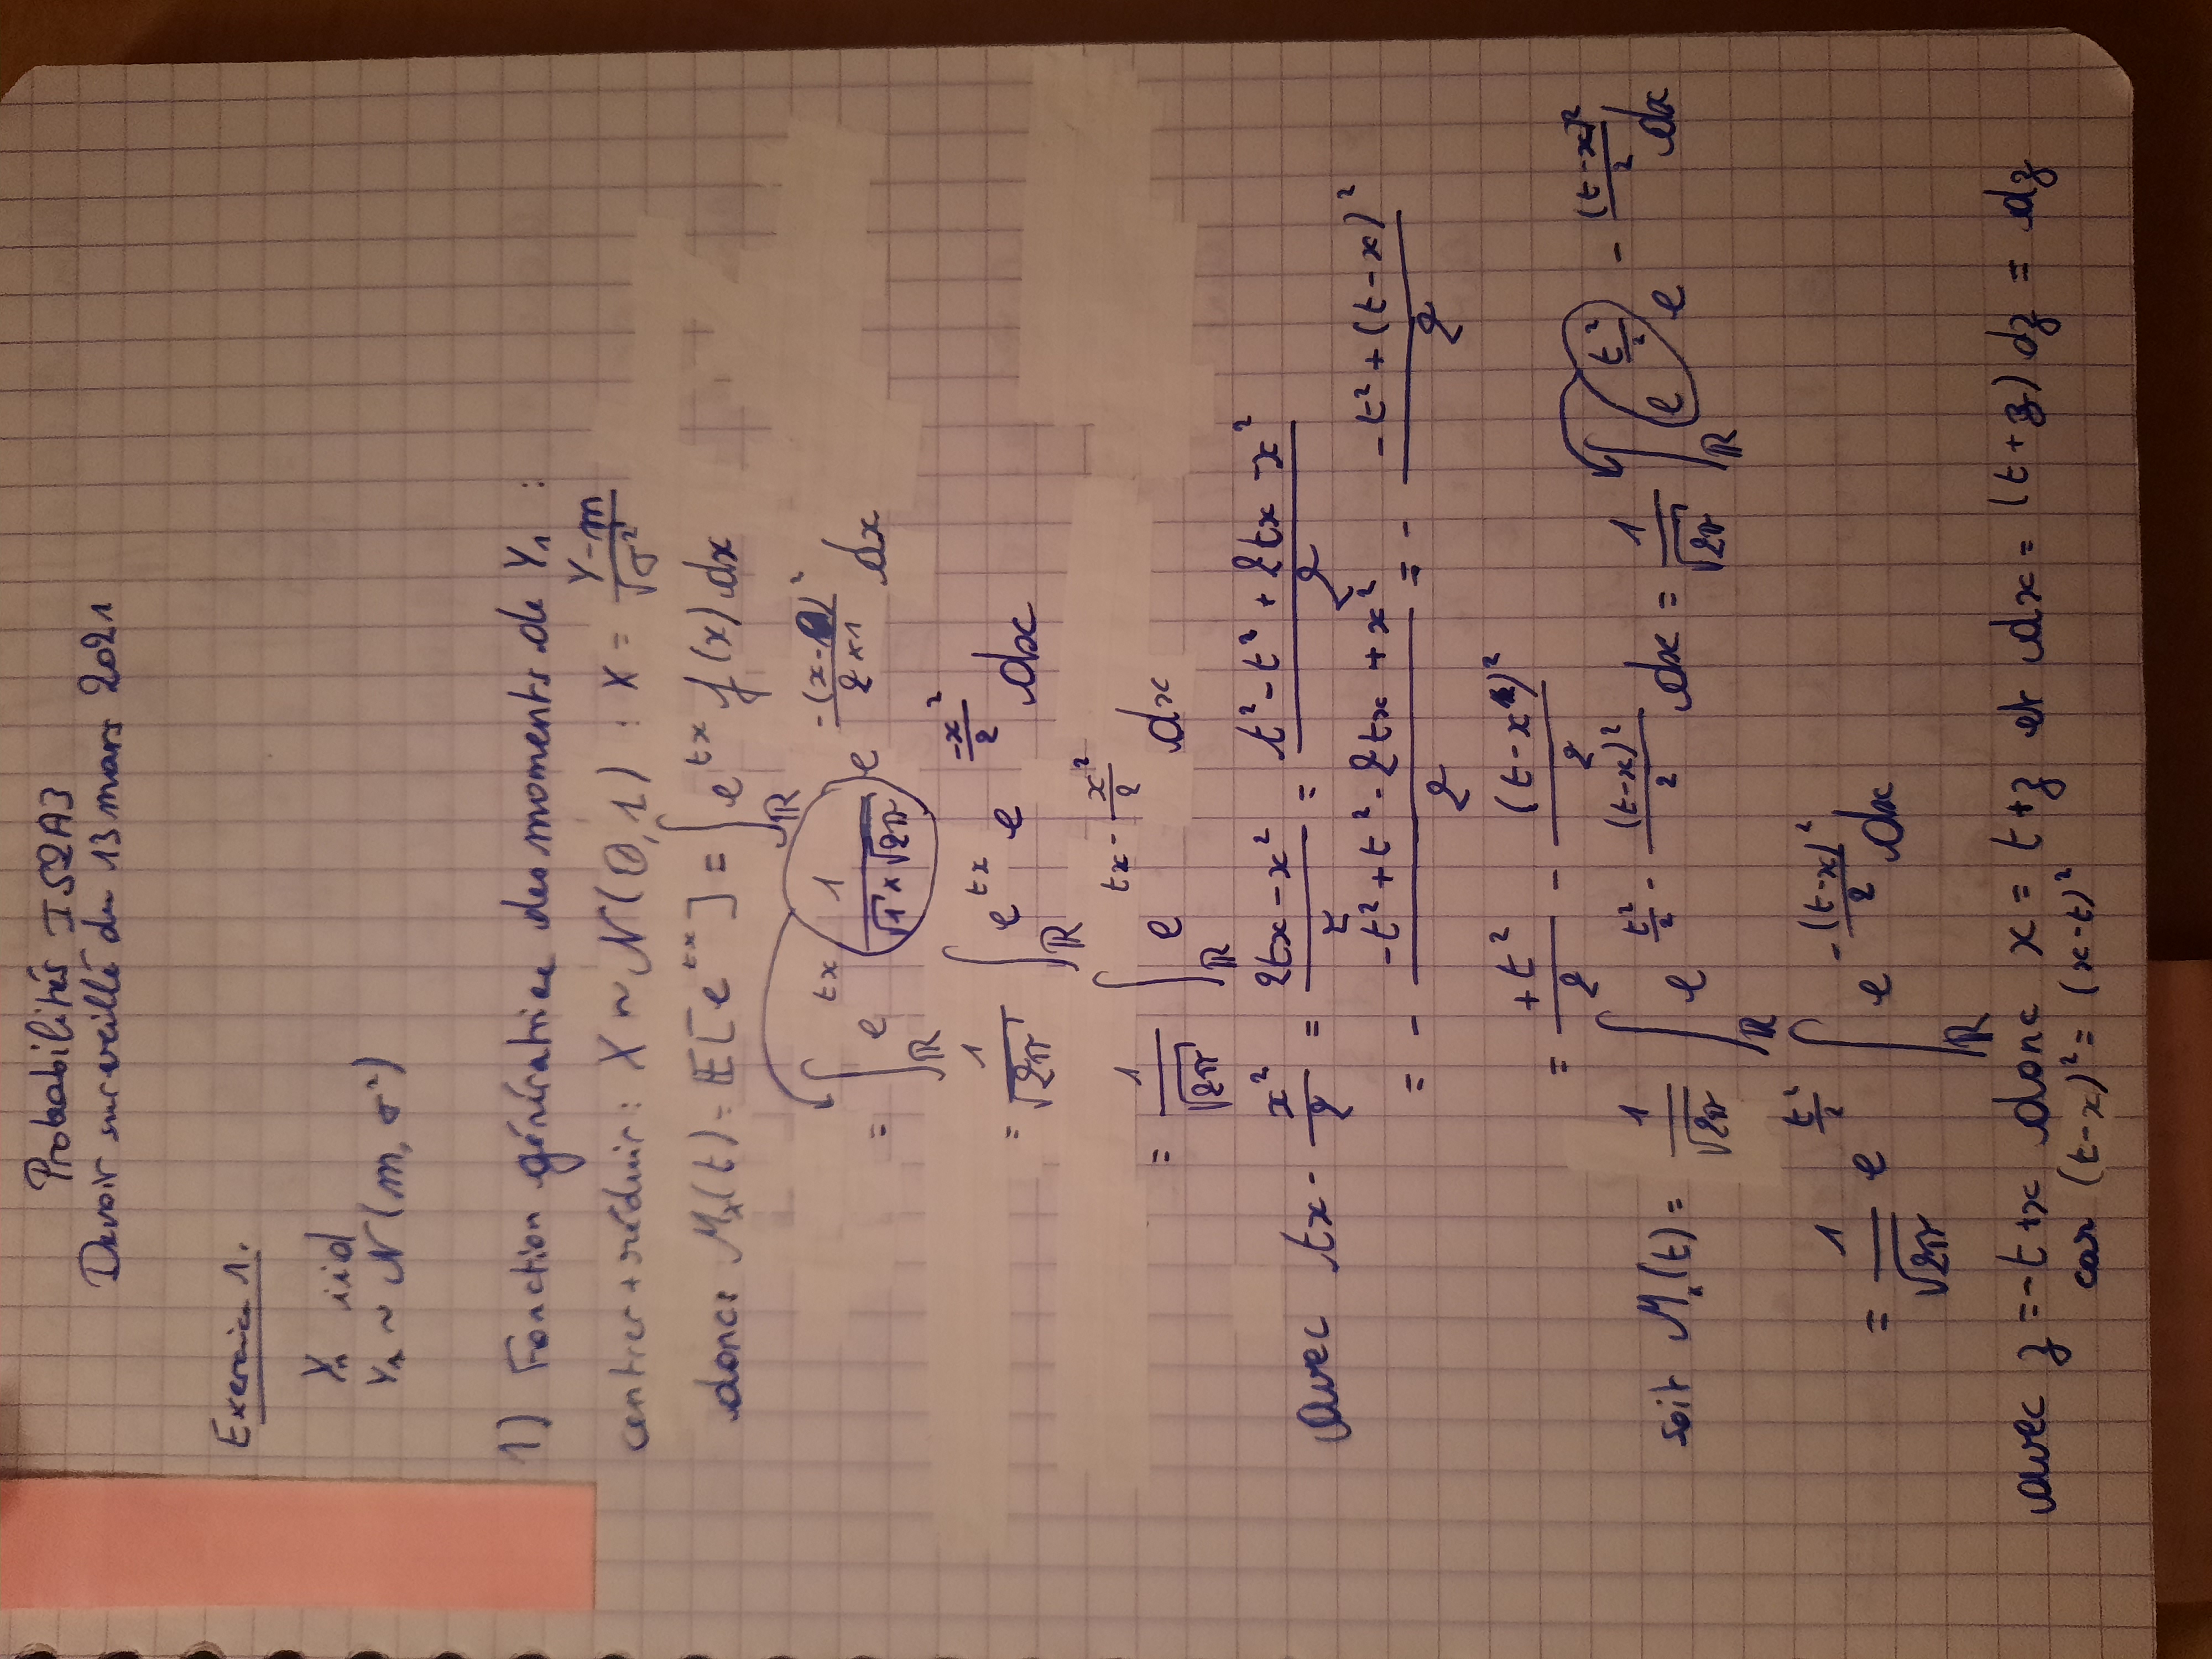 Probabilités IS2A3
Devoir surveillé du 13 mars 2021
Exercice 1.
Yₙ iid
Y₁ ~ N(m, σ²)
1) Fonction génératrice des moments de Y₁ :
centrer + réduir : X ~ N(0,1) : X = (Y-m)/√σ²
donc M_X(t) = E[e^{tx}] = ∫_ℝ e^{tx} f(x) dx
= ∫_ℝ e^{tx} 1/(√1 × √2π) e^{-(x-0)²/(2×1)} dx
= 1/√2π ∫_ℝ e^{tx} e^{-x²/2} dx
= 1/√2π ∫_ℝ e^{tx - x²/2} dx
avec tx - x²/2 = (2tx - x²)/2 = (t² - t² + 2tx - x²)/2
= - (-t² + t² - 2tx + x²)/2 = - (-t² + (t-x)²)/2
= +t²/2 - (t-x)²/2
soit M_x(t) = 1/√2π ∫_ℝ e^{t²/2 - (t-x)²/2} dx = 1/√2π ∫_ℝ e^{t²/2} e^{-(t-x)²/2} dx
= 1/√2π e^{t²/2} ∫_ℝ e^{-(t-x)²/2} dx
avec z = -t+x donc x = t+z et dx = (t+z) dz = dz
car (t-x)² = (x-t)²